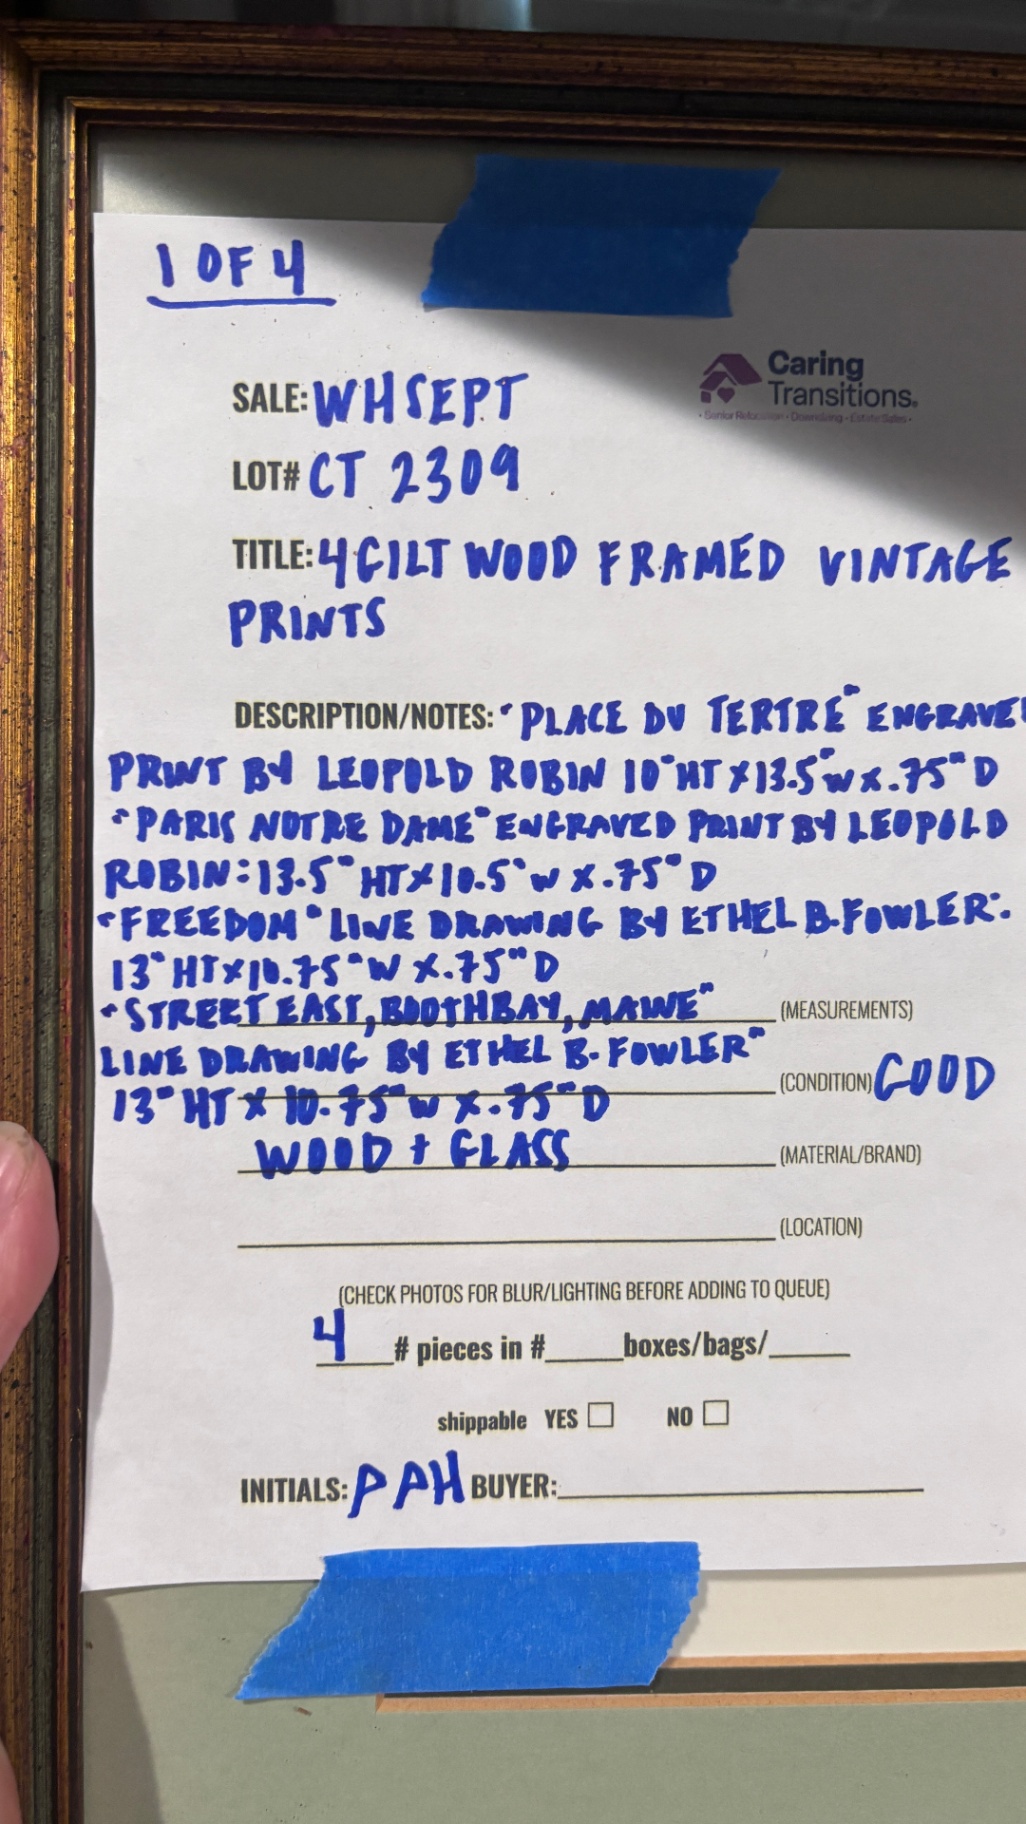 1 OF 4
Caring
Transitions.
• Senior Relocation • Downsizing • Estate Sales •
SALE: WHSEPT
LOT# CT 2309
TITLE: 4 GILT WOOD FRAMED VINTAGE
PRINTS
DESCRIPTION/NOTES: "PLACE DU TERTRE" ENGRAVE
PRINT BY LEOPOLD ROBIN 10" HT X 13.5" W X .75" D
"PARIS NOTRE DAME" ENGRAVED PRINT BY LEOPOLD
ROBIN: 13.5" HT X 10.5" W X .75" D
"FREEDOM" LINE DRAWING BY ETHEL B. FOWLER:
13" HT X 10.75" W X .75" D
"STREET EAST, BOOTHBAY, MAINE" (MEASUREMENTS)
LINE DRAWING BY ETHEL B. FOWLER"
13" HT X 10.75" W X .75" D (CONDITION) GOOD
WOOD + GLASS (MATERIAL/BRAND)
(LOCATION)
(CHECK PHOTOS FOR BLUR/LIGHTING BEFORE ADDING TO QUEUE)
4 # pieces in #_____boxes/bags/_____
shippable YES ☐ NO ☐
INITIALS: PAH BUYER: